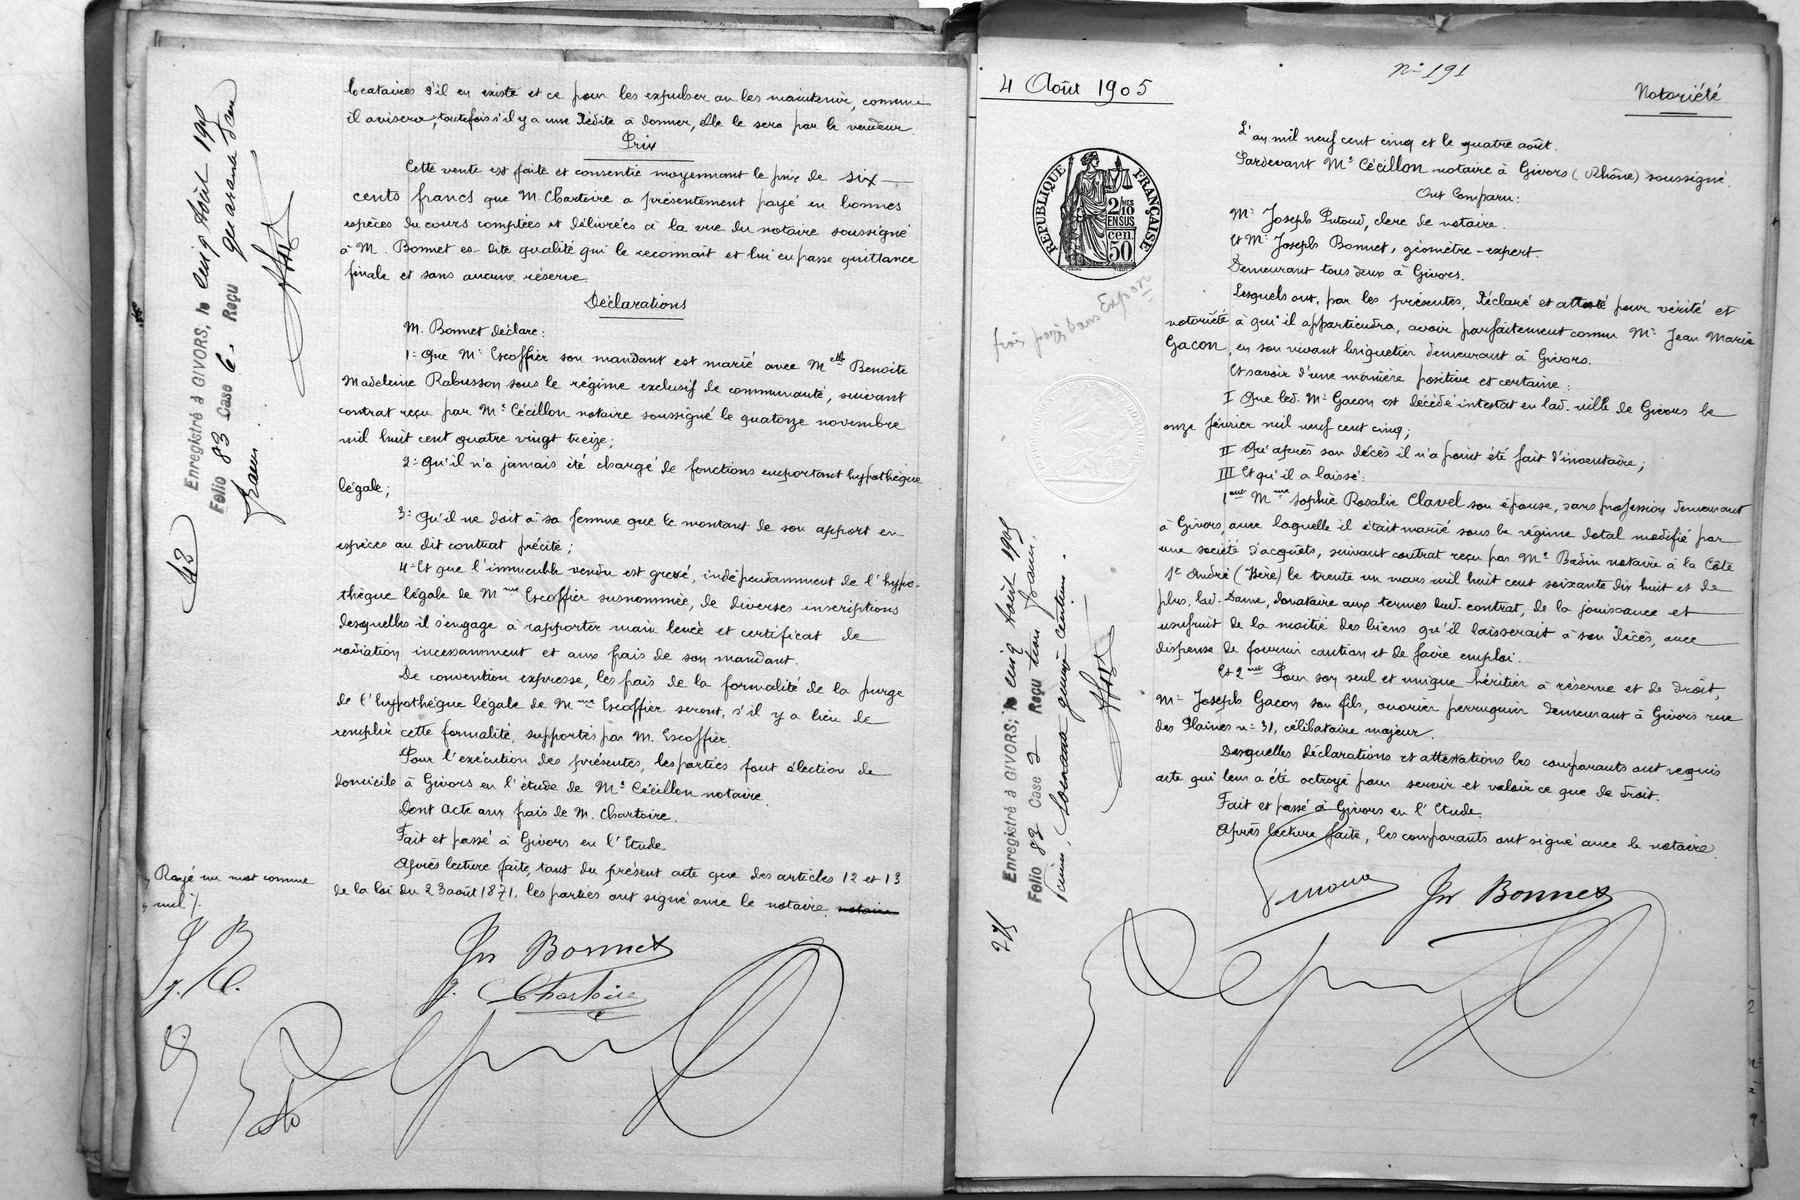 locataires s'il en existe et ce pour les expulser ou les maintenir, comme
il avisera, toutefois s'il y a une dédite à donner, elle le sera par le vendeur.
Prix
Cette vente est faite et consentie moyennant le prix de six
cents francs que M. Chartoire a présentement payé en bonnes
espèces du cours comptées et délivrées à la vue du notaire soussigné
à M. Bonnet es-dite qualité qui le reconnait et lui en passe quittance
finale et sans aucune réserve.
Déclarations
M. Bonnet déclare:
1º Que Mr Escoffier son mandant est marié avec Melle Benoite
Madeleine Rabusson sous le régime exclusif de communauté, suivant
contrat reçu par Me Cécillon notaire soussigné le quatorze novembre
mil huit cent quatre vingt treize;
2º Qu'il n'a jamais été chargé de fonctions emportant hypothèque
légale;
3º Qu'il ne doit à sa femme que le montant de son apport en
espèces au dit contrat précité;
4º Et que l'immeuble vendu est grevé, indépendamment de l'hypo-
thèque légale de Mme Escoffier susnommée, de diverses inscriptions
desquelles il s'engage à rapporter main levée et certificat de
radiation incessamment et aux frais de son mandant.
De convention expresse, les frais de la formalité de la purge
de l'hypothèque légale de Mme Escoffier seront, s'il y a lieu de
remplir cette formalité, supportés par M. Escoffier.
Pour l'exécution des présentes, les parties font élection de
domicile à Givors en l'étude de Me Cécillon notaire.
Dont acte aux frais de M. Chartoire.
Fait et passé à Givors en l'Etude.
Après lecture faite, tant du présent acte que des articles 12 et 13
de la loi du 23 août 1871, les parties ont signé avec le notaire. notaire
Rayé un mot comme
nul /.
J B
J. C.
Jh Bonnet
J. Chartoire
Enregistré à GIVORS, le cinq Août 1905
Folio 83 Case 6. Reçu quarante deux
francs
42
4 Août 1905
Nº 191
Notoriété
RÉPUBLIQUE FRANÇAISE
2/10
EN SUS
cen.
50
frais payés dans Expon
L'an mil neuf cent cinq et le quatre août.
Pardevant Me Cécillon notaire à Givors (Rhône) soussigné.
Ont Comparu:
Mr Joseph Putoud, clerc de notaire.
Et Mr Joseph Bonnet, géomètre-expert.
Demeurant tous deux à Givors.
Lesquels ont, par les présentes, déclaré et attesté pour vérité et
notoriété à qui il appartiendra, avoir parfaitement connu Mr Jean Marie
Gacon, en son vivant briquetier demeurant à Givors.
Et savoir d'une manière positive et certaine:
I Que led. Mr Gacon est décédé intestat en lad. ville de Givors le
onze février mil neuf cent cinq;
II Qu'après son décès il n'a point été fait d'inventaire;
III Et qu'il a laissé:
1ent Mme Sophie Rosalie Clavel son épouse, sans profession demeurant
à Givors, avec laquelle il était marié sous le régime dotal modifié par
une société d'acquets, suivant contrat reçu par Me Badin notaire à la Côte
St André (Isère) le trente un mars mil huit cent soixante dix huit et de
plus, lad. Dame, donataire aux termes dud. contrat, de la jouissance et
usufruit de la moitié des biens qu'il laisserait à son décès, avec
dispense de fournir caution et de faire emploi.
Et 2ent Pour son seul et unique héritier à réserve et de droit,
Mr Joseph Gacon son fils, ouvrier perruquier demeurant à Givors rue
des Plaines nº 31, célibataire majeur.
Desquelles déclarations et attestations les comparants ont requis
acte qui leur a été octroyé pour servir et valoir ce que de droit.
Fait et passé à Givors en l'Etude.
Après lecture faite, les comparants ont signé avec le notaire.
Jh Bonnet
Enregistré à GIVORS, le cinq Août 1905
Folio 83 Case 2 Reçu trois francs,